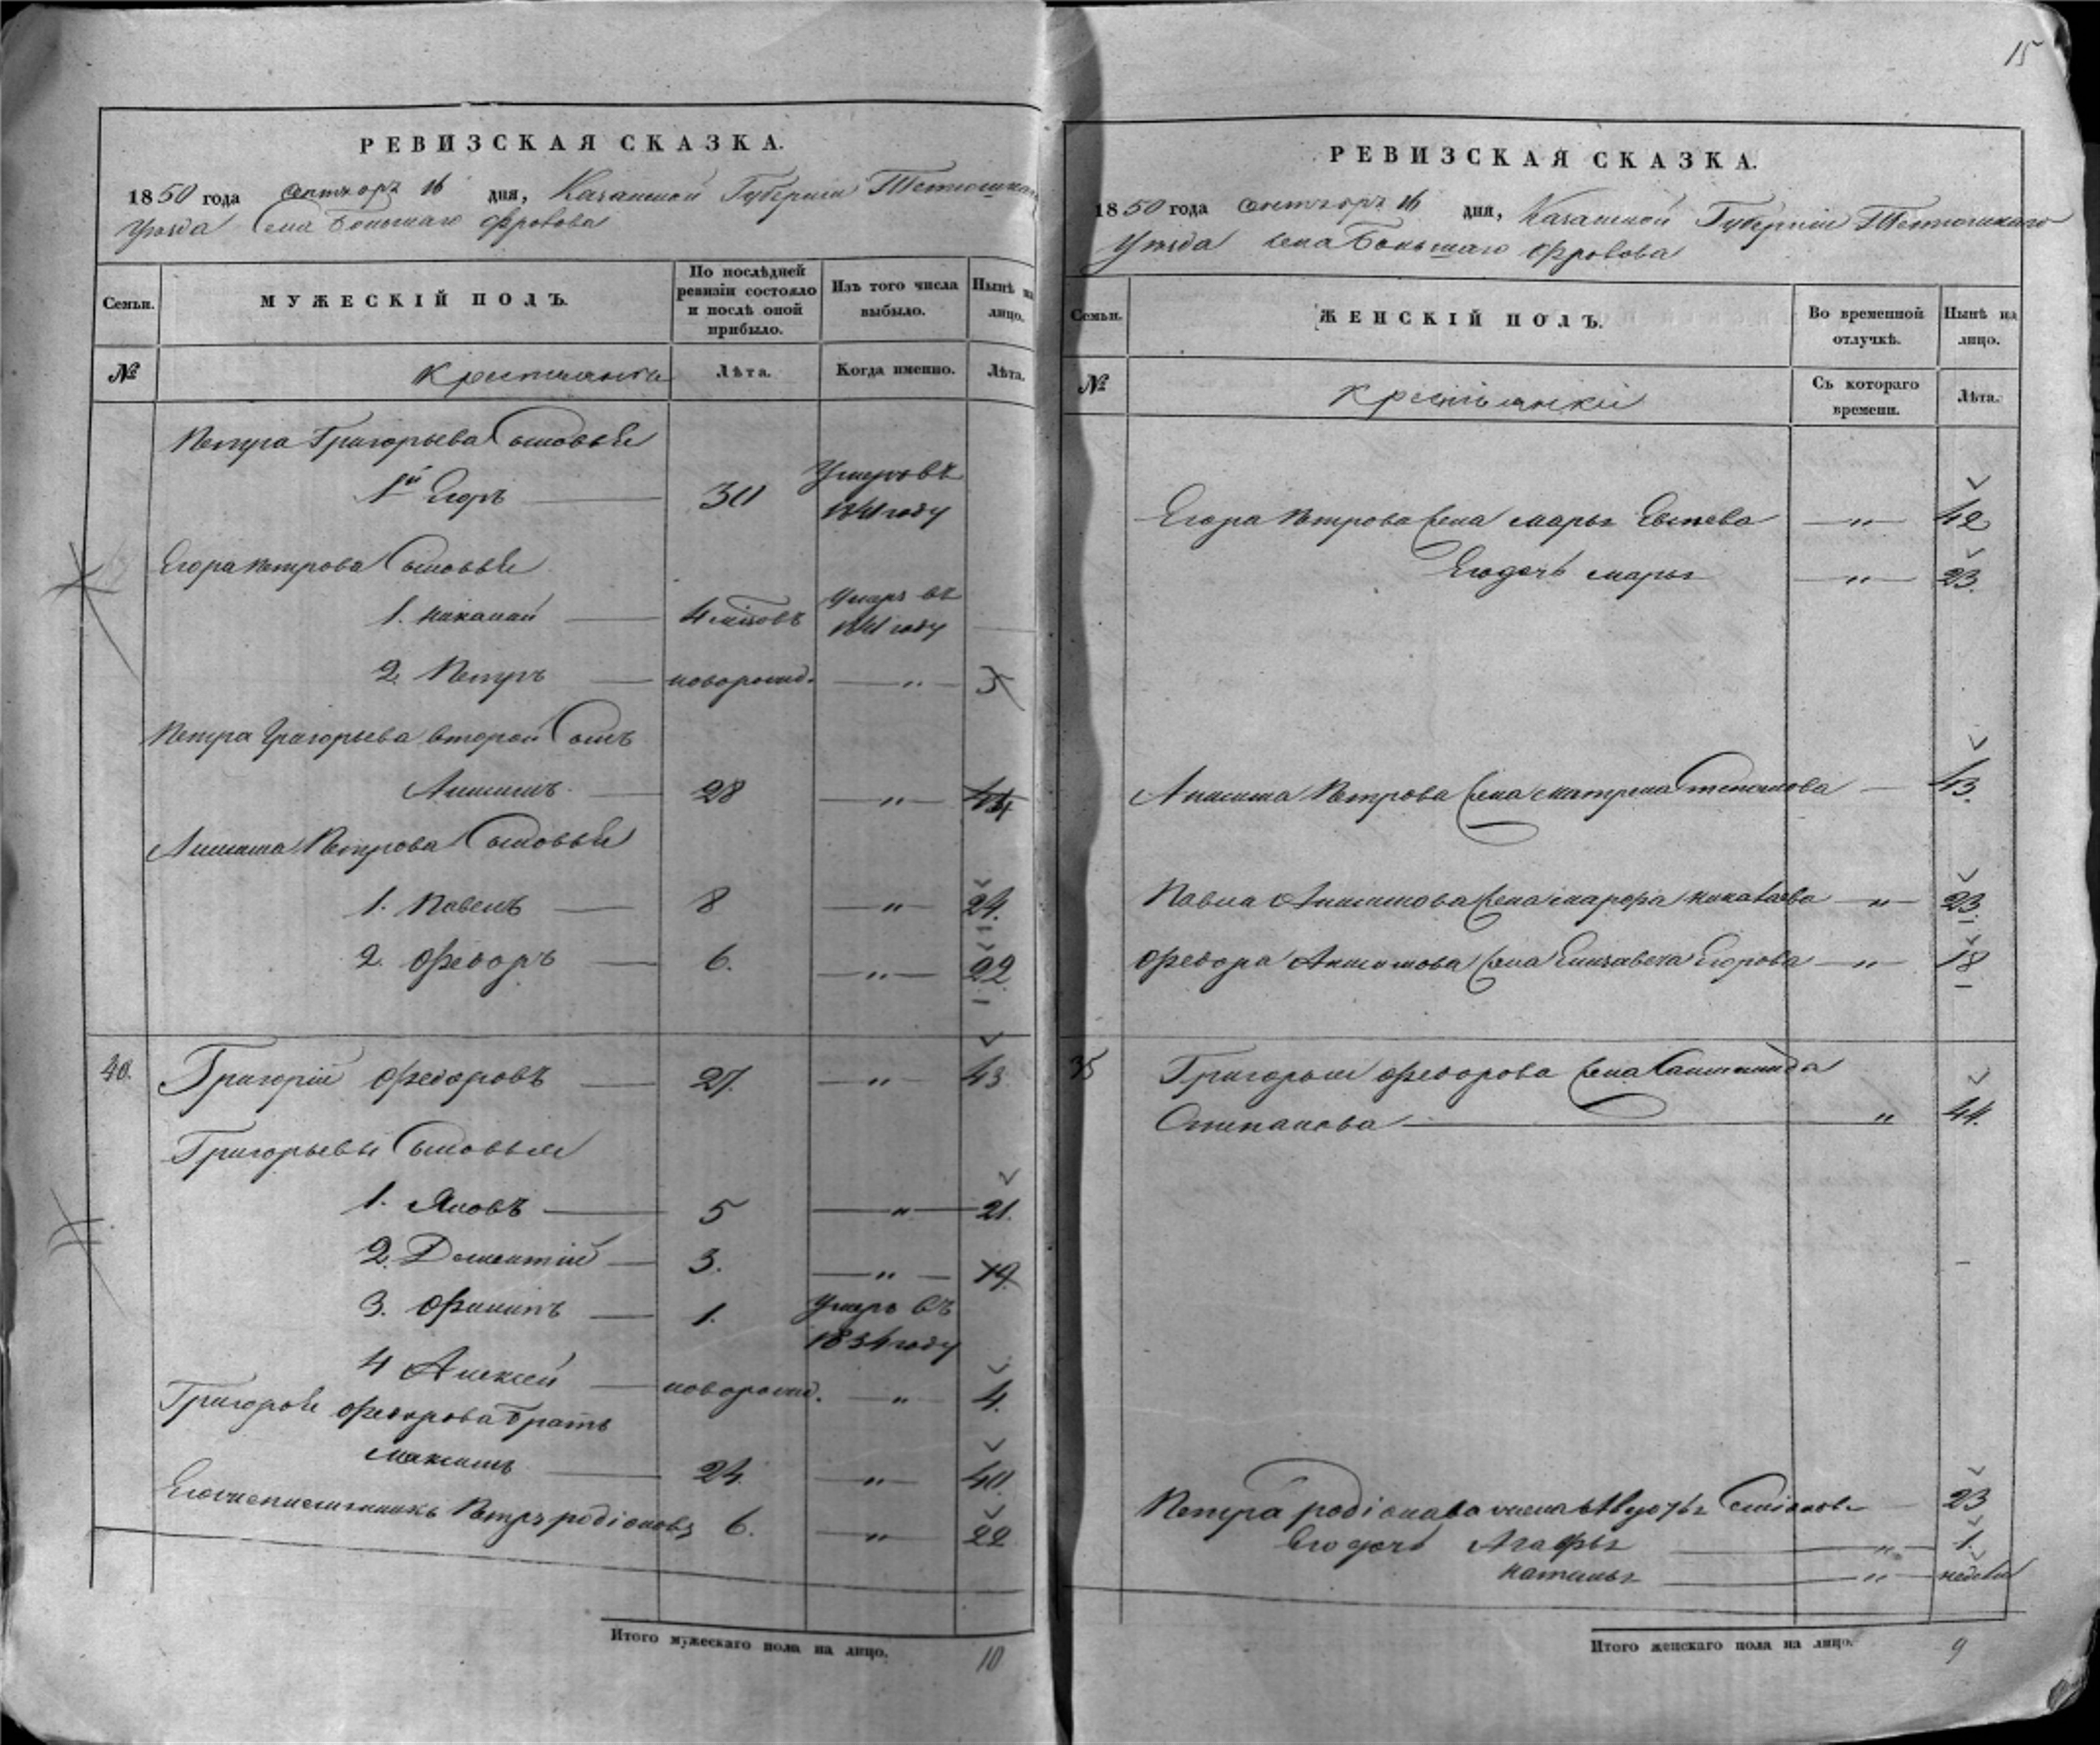 15
РЕВИЗСКАЯ СКАЗКА.
1850 года сентября 16 дня, Казанской Губернии Тетюшскаго
Уѣзда Села Большаго Фролова
Семьи. МУЖЕСКІЙ ПОЛЪ. По послѣдней ревизіи состояло и послѣ оной прибыло. Изъ того числа выбыло. Нынѣ на лицо.
№ Крестьяне Лѣта. Когда именно. Лѣта.
Петра Григорьева Сыновья
1й Егоръ 30 Умеръ въ
1841 году
Егора Петрова Сыновья
1. 4 Умеръ въ
1841 году
2. Петръ новорожд. — " —
Петра Григорьева второй Сынъ
Анисимъ 28 — " — 44
Анисима Петрова Сыновья
1. Павелъ 8 — " — 24.
2. Федоръ 6. — " — 22.
40. Григорій Федоровъ 27. — " — 43
Григорьевы Сыновья
1. Яковъ 5 — " — 21.
2. Дементій 3. — " — 19.
3. Филипъ 1. Умеръ въ
1834 году
4 Алексей новорожд. — " — 4.
Григорья Федорова братъ
Максимъ 24. — " — 40
Его племянникъ Петръ родіоновъ 6. — " — 22
Итого мужескаго пола на лицо. 10
РЕВИЗСКАЯ СКАЗКА.
1850 года сентября 16 дня, Казанской Губерніи Тетюшскаго
Уѣзда села Большаго Фролова
Семьи. ЖЕНСКІЙ ПОЛЪ. Во временной отлучкѣ. Нынѣ на лицо.
№ Крестьянки Съ котораго времени. Лѣта.
Егора Петрова жена Марья — " — 42
Его дочь Марья — " — 23.
Анисима Петрова жена Матрена Степанова — 43.
Павла Анисимова жена Марфа — " — 23.
Федора Анисимова жена Елизавета Егорова — " — 18
35 Григорья Федорова жена
Степанова " 44.
Петра родіонова жена 23
Его дочь Агафья — " — 1.
Наталья — " — недели
Итого женскаго пола на лицо. 9